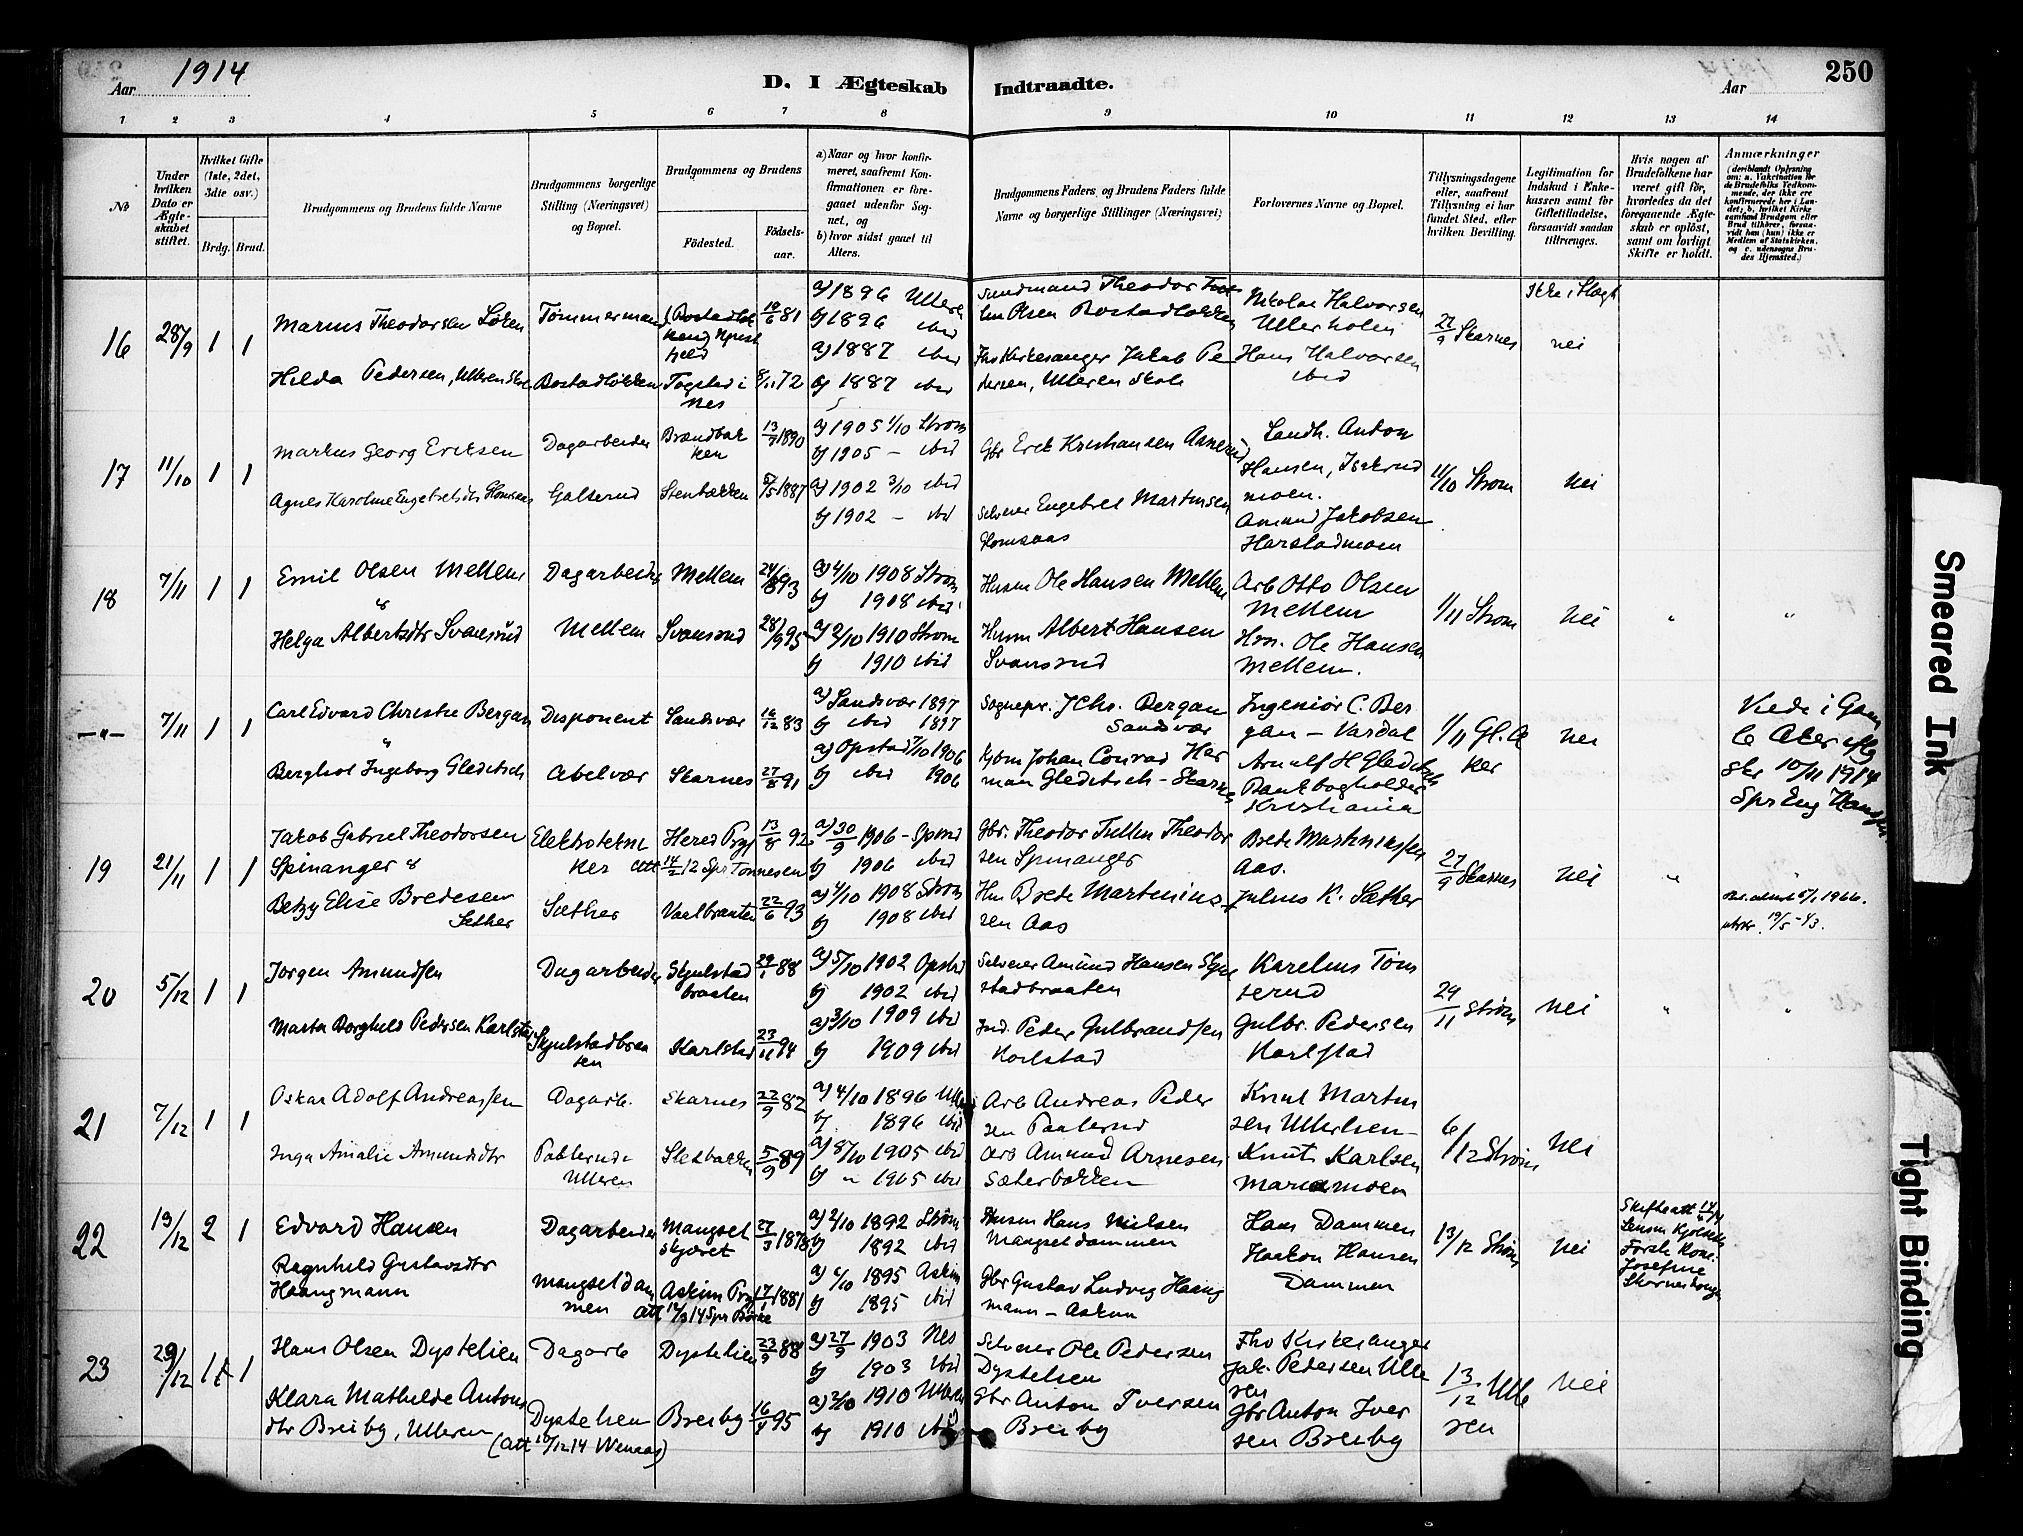 1914
Aar
D. I Ægteskab
Indtraadte.
Aar
250
1 2 3 4 5 6 7 8 9 10 11 12 13 14
No
Under hvilken Dato er Ægteskabet stiftet.
Hvilket Gifte (1ste, 2det, 3die osv.)
Brdg. Brud.
Brudgommens og Brudens fulde Navne
Brudgommens borgerlige Stilling (Næringsvei) og Bopæl.
Brudgommens og Brudens
Fødested.
Fødselsaar.
a) Naar og hvor konfirmeret, saafremt Konfirmationen er foregaaet udenfor Sognet, og
b) hvor sidst gaaet til Alters.
Brudgommens Faders og Brudens Faders fulde Navne og borgerlige Stillinger (Næringsvei)
Forlovernes Navne og Bopæl.
Tillysningsdagene eller, saafremt Tillysning ei har fundet Sted, efter hvilken Bevilling.
Legitimation for Indskud i Enkekassen samt for Giftetilladelse, forsaavidt saadan tiltrænges.
Hvis nogen af Brudefolkene har været gift før, hvorledes da det foregaaende Ægteskab er opløst, samt om lovligt Skifte er holdt.
Anmærkninger
16 28/9 1 1
Marius Theodorsen Löken
Tømmermand
19/6 81
a) 1896 Ulleren
b) 1896 ibid
Bostadløkken
Nikolai Halvorsen
Ullerholen
27/9 Skarnes
Ikke i Slægt
nei
Hilda Pedersen, Ulleren Skole
Bostadløkken
Fogstad i Nes
8/11 72
a) 1887 ibid
b) 1887 ibid
Fhv Kirkesanger Jakob Pedersen, Ulleren Skole
Hans Halvorsen
ibid
17 11/10 1 1
Markus Georg Eriksen
Dagarbeider
Brændbakken
13/9 1890
a) 1905 1/10 Strøm
b) 1905 - ibid
Gbr Erik Kristiansen Asnerud
Landh. Anton
Hansen,
moen.
11/10 Strøm
nei
Agnes Karoline Engebretsdtr Homsaas
Galterud
Stenbækken
5/5 1887
a) 1902 3/10 ibid
b) 1902 - ibid
Selveier Engebret Martinsen
Homsaas
Amund Jakobsen
Harstadmoen
18 7/11 1 1
Emil Olsen Mellem
&
Dagarbeider
Mellem
24/8 93
a) 4/10 1908 Strøm
b) 1908 ibid
Husm Ole Hansen Mellem
Arb Otto Olsen
Mellem
1/11 Strøm
nei
" "
Helga Albertsdtr Svansrud
Mellem
Svansrud
28/9 95
a) 2/10 1910 Strøm
b) 1910 ibid
Husm Albert Hansen
Svansrud
Hsm. Ole Hansen
Mellem.
-"- 7/11 1 1
Carl Edvard Christie Bergan
&
Disponent
Sandsvær
16/12 83
a) Sandsvær 1897
b) ibid 1897
Sognepr. J Chr. Bergan
Sandsvær
Ingeniør C. Bergan - Vardal
1/11 Gl. Aker
nei
Viede i Gamle Aker iflg
Skr 10/11 1914
Berghot Ingeborg Gleditsch
Abelvær
Skarnes
27/8 91
a) Opstad 7/10 1906
b) ibid 1906
Johan Conrad Herman Gleditsch - Skarnes
Arnulf H Gleditsch
Bankbogholder
Kristiania
19 21/11 1 1
Jakob Gabriel Theodorsen
Spinanger &
Elektrotekniker
Hered Prgj
13/8 92
Att 14/2 12 Spr Tønnesen
a) 30/9 1906 - Spind
b) 1906 ibid
Gbr. Theodor Tullin Theodorsen Spinanger
Brede Martiniussen
Aas.
27/9 Skarnes
nei
"
Betzy Elise Bredesen
Sæther
Sæther
Vaalbraaten
22/6 93
a) 4/10 1908 Strøm
b) 1908 ibid
Hm Brede Martiniussen Aas
Julius K. Sæther
1966.
19/5 - 43.
20 5/12 1 1
Jørgen Amundsen
Dagarbeider
Skjulstadbraaten
29/1 88
a) 5/10 1902 Opstad
b) 1902 ibid
Selveier Amund Hansen Skjulstadbraaten
Karelius Tomterud
29/11 Strøm
nei
" "
Marta Borghild Pedersen Karlstad
Skjulstadbraaten
Karlstad
23/11 94
a) 3/10 1909 ibid
b) 1909 ibid
Ind. Peder Gulbrandsen
Karlstad
Gulbr. Pedersen
Karlstad
21 7/12 1 1
Oskar Adolf Andreassen
Dagarb.
Skarnes
22/9 82
a) 4/10 1896 Ulleren
b) 1896 ibid
Arb Andreas Pedersen Paalerud
Knut Martinsen Ullersen-
6/12 Strøm
nei
Inga Amalie Amundsdtr
Ulleren
Sletbakken
5/9 89
a) 8/10 1905 ibid
b) " 1905 ibid
Arb Amund Arnesen
Sæterbakken
Knut Karlsen
Mariemoen
22 19/12 2 1
Edvard Hansen
Dagarbeider
Mangset
skjæret
27/3 1878
a) 2/10 1892 Strøm
b) 1892 ibid
Husm Hans Nielsen
Mangsetdammen
Hans Dammen
13/12 Strøm
nei
Skifteatt
Første Kone.
Josefine
Ragnhild Gustavsdtr
Haangmann
Mangseldammen
Askim Prgj
17/1 1881
a) 6/10 1895 Askim
b) 1895 ibid
Gbr Gustav Ludvig Haangmann - Askim
Haakon Hansen
Dammen
23 29/12 1 1
Hans Olsen Dystelien
Dagarb
Dystelien
23/9 88
a) 27/9 1903 Nes
b) 1903 ibid
Selveier Ole Pedersen
Dystelien
Fhv Kirkesanger
Jak. Pedersen Ullersen
13/12 Ullersen
nei
Klara Mathilde Antonsdtr Breiby, Ulleren
Dystelien
Breiby
16/4 95
(Att 10/12 14 Wenaas)
a) 2/10 1910 Ulleren
b) 1910 ibid
Gbr Anton Iversen
Breiby
Gbr Anton Iversen Breiby
Smeared Ink
Tight Binding